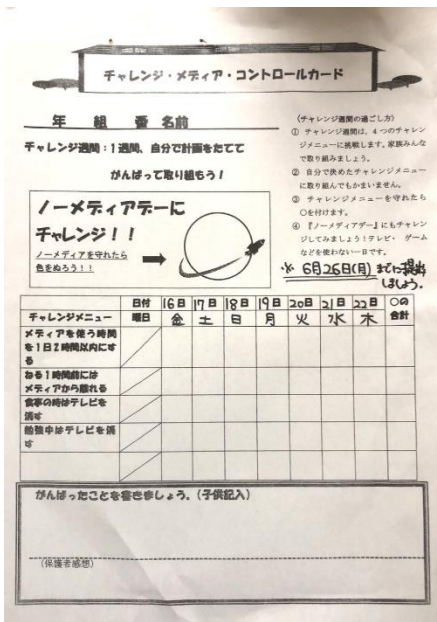 チャレンジ・メディア・コントロールカード
年 組 番 名前
チャレンジ週間：1週間、自分で計画をたてて
がんばって取り組もう！
ノーメディアデーに
チャレンジ！！
ノーメディアを守れたら
色をぬろう！！
〈チャレンジ週間の過ごし方〉
① チャレンジ週間は、4つのチャレン
ジメニューに挑戦します。家族みんな
で取り組みましょう。
② 自分で決めたチャレンジメニュー
に取り組んでもかまいません。
③ チャレンジメニューを守れたら
○を付けます。
④ 『ノーメディアデー』にもチャレン
ジしてみましょう！テレビ・ゲーム
などを使わない一日です。
※ 6月26日(月)までに提出
しましょう。
日付 16日 17日 18日 19日 20日 21日 22日 ○の
チャレンジメニュー 曜日 金 土 日 月 火 水 木 合計
メディアを使う時間
を1日2時間以内にす
る
ねる1時間前には
メディアから離れる
食事の時はテレビを
消す
勉強中はテレビを消
す
がんばったことを書きましょう。(子供記入)
(保護者感想)